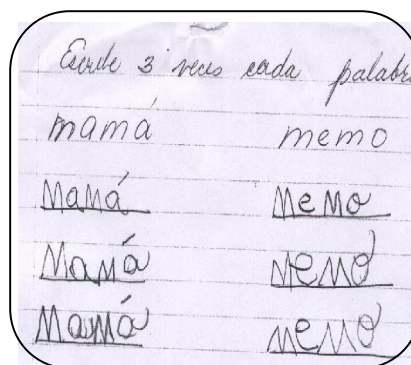 Escribe 3 veces cada palabra
mamá memo
Mamá Memo
Mamá Memo
Mamá memo